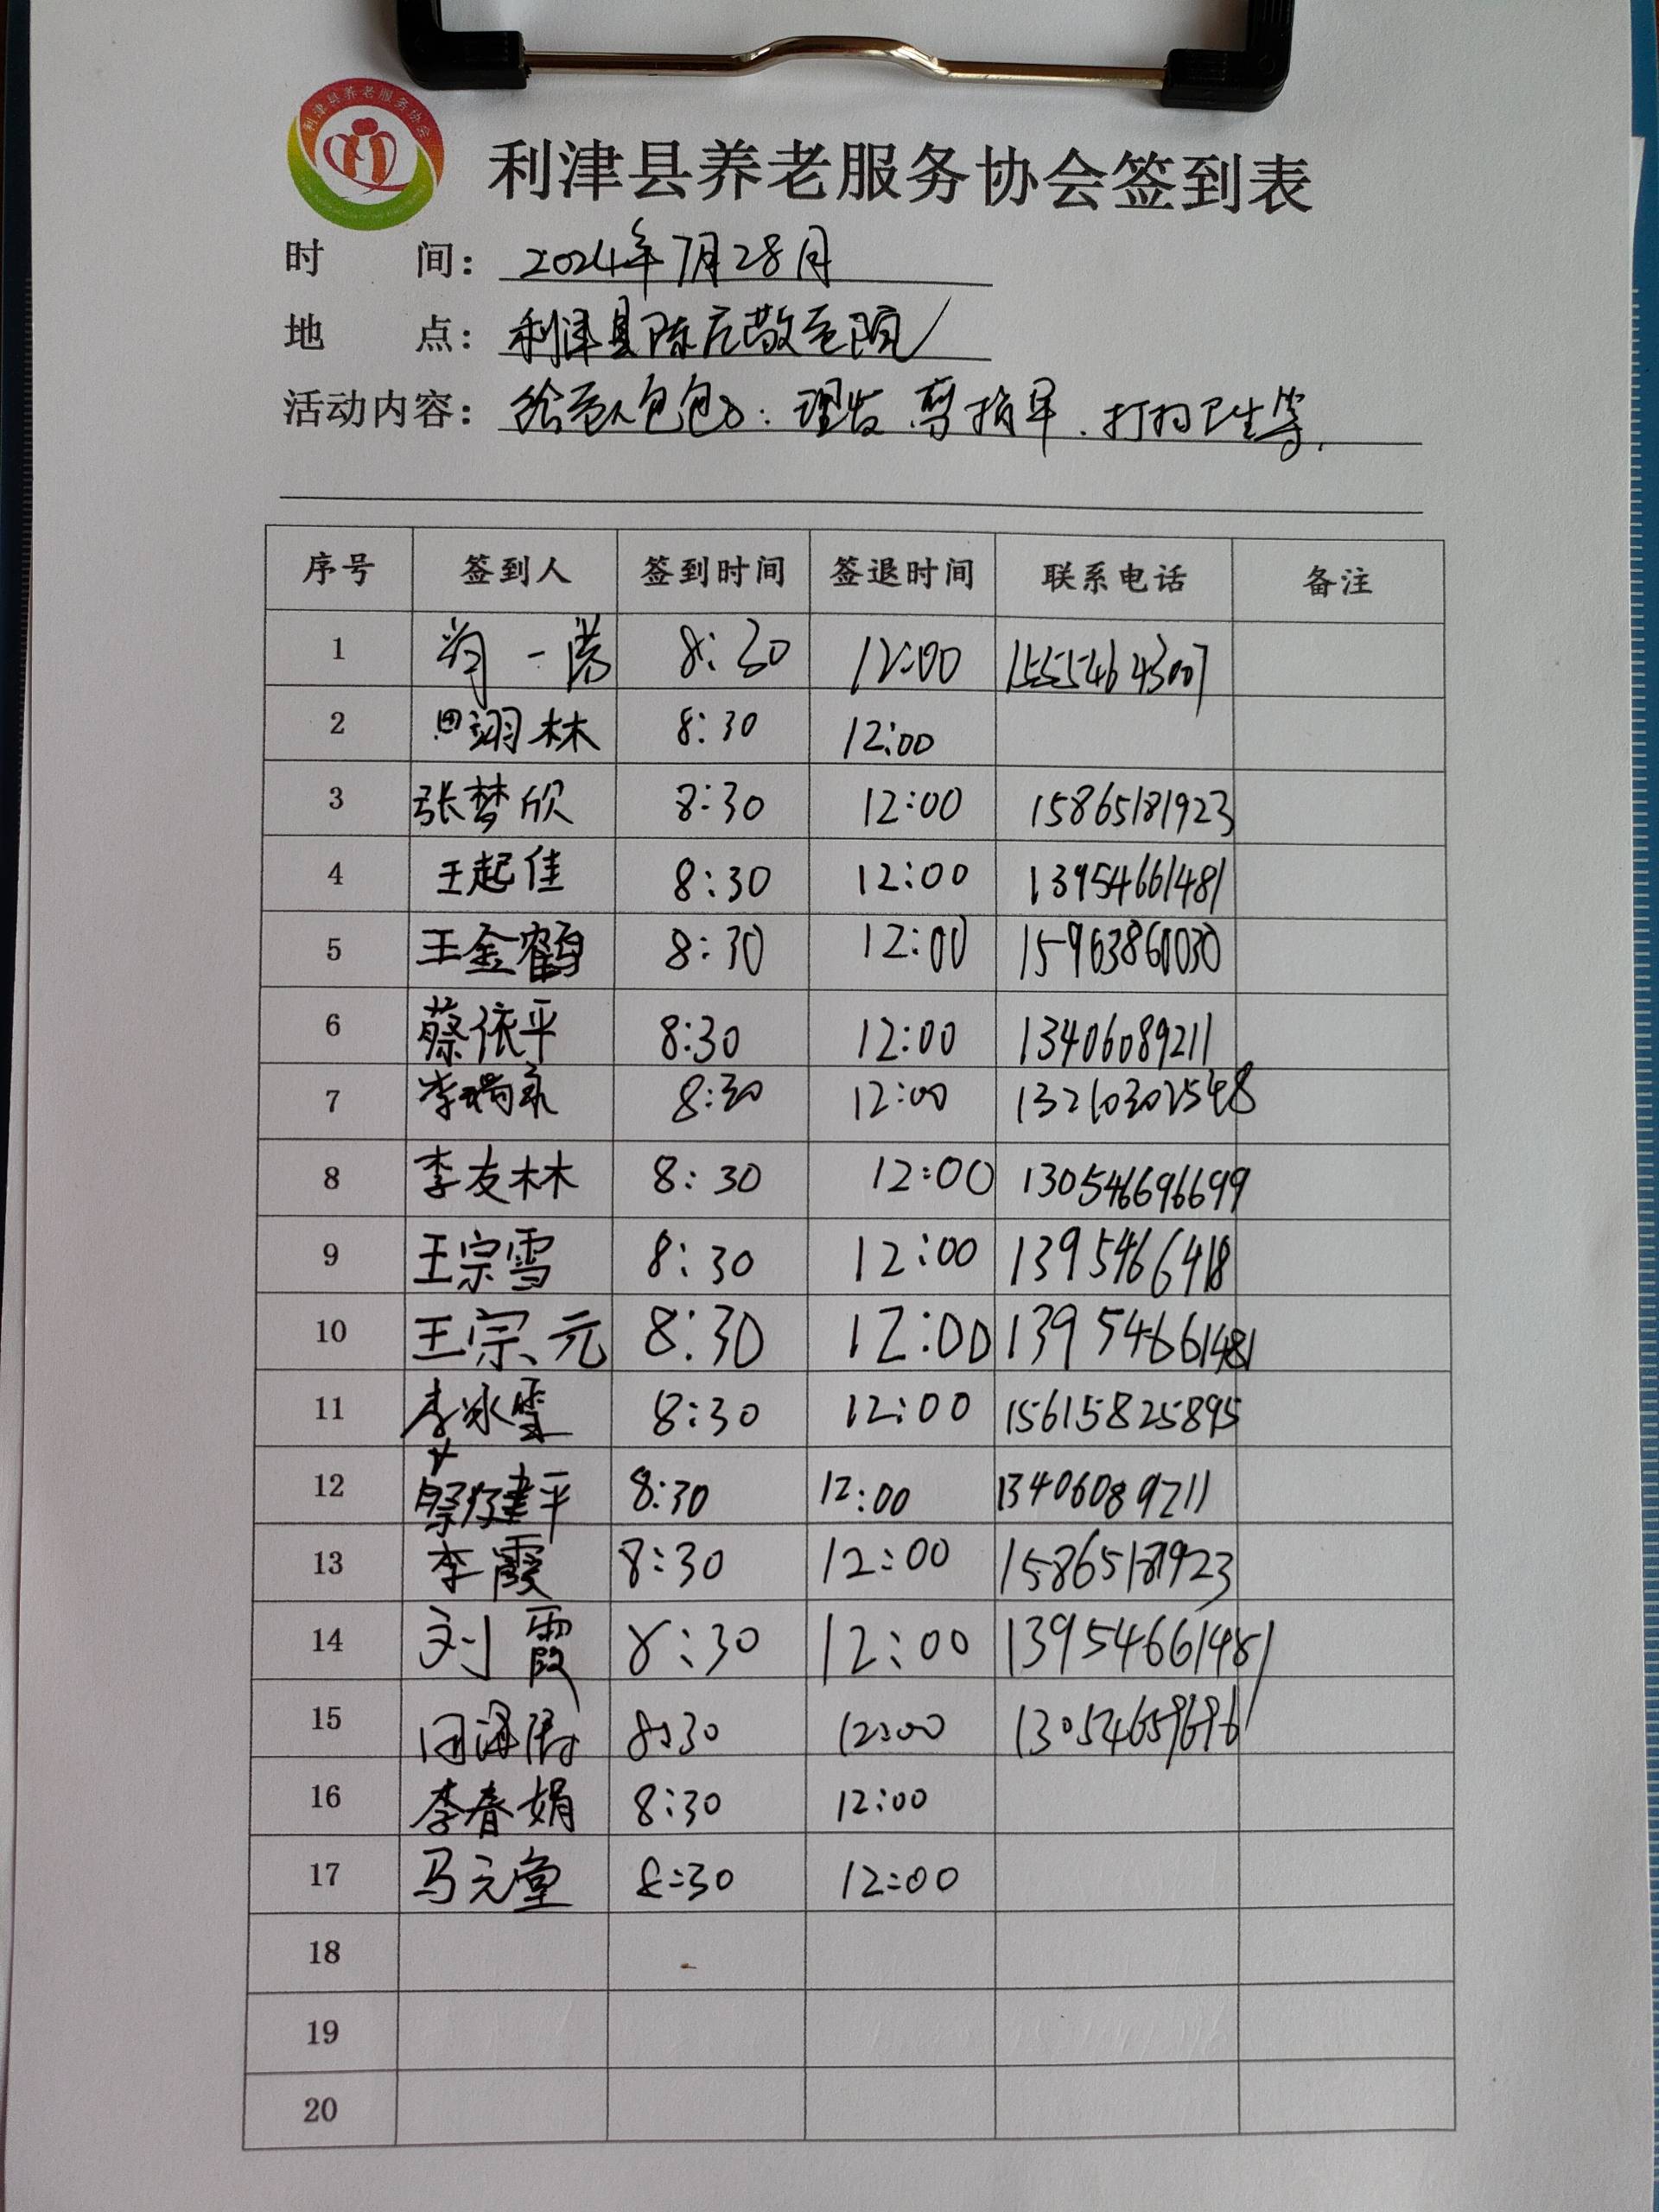 利津县养老服务协会
利津县养老服务协会签到表
时 间： 2024年7月28日
地 点： 利津县陈庄敬老院
活动内容： 给老人包包子. 理发 剪指甲. 打扫卫生等.
序号 签到人 签到时间 签退时间 联系电话 备注
1 一诺 8:30 12:00 15554643007
2 田翊林 8:30 12:00
3 张梦欣 8:30 12:00 15865181923
4 王起佳 8:30 12:00 13954661481
5 王金鹤 8:30 12:00 15963860030
6 蔡依平 8:30 12:00 13406089211
7 李瑞 8:30 12:00 13210302548
8 李友林 8:30 12:00 130546696699
9 王宗雪 8:30 12:00 1395466418
10 王宗元 8:30 12:00 13954661481
11 李冰雪 8:30 12:00 15615825895
12 蔡健平 8:30 12:00 13406089211
13 李霞 8:30 12:00 15865181923
14 刘霞 8:30 12:00 13954661481
15 8:30 12:00 13054659696
16 李春娟 8:30 12:00
17 马元堂 8:30 12:00
18
19
20